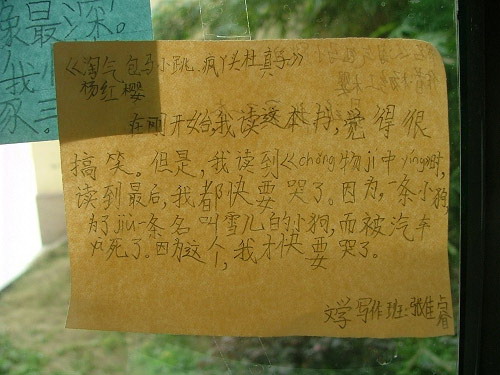 像最深!
《淘气包马小跳.疯丫头杜真子》
杨红樱
在刚开始,我读这本书,觉得很
搞笑。但是,我读到《chǒng物jì中yíng》时,
读到最后,我都快要哭了。因为,一条小狗
为了jiù一条名叫雪儿的小狗,而被汽车
炸死了。因为这个,我才快要哭了。
文学写作班:张佳睿